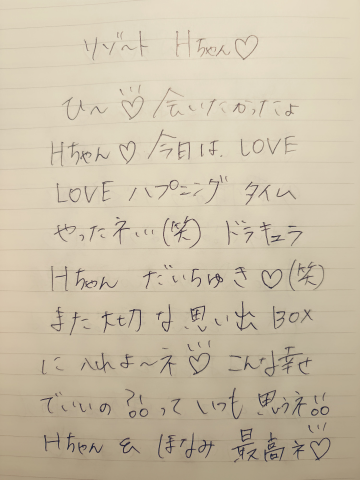 リゾート Hちゃん♡
ひ〜♡会いたかったよ
Hちゃん♡今日は、LOVE
LOVE ハプニング タイム
やったネ…(笑) ドラキュラ
Hちゃん だいちゅき♡(笑)
また大切な思い出BOX
に入れよ〜ネ♡こんな幸せ
でいいの?!って いつも 思うネ!!
Hちゃん & ほなみ 最高ネ♡